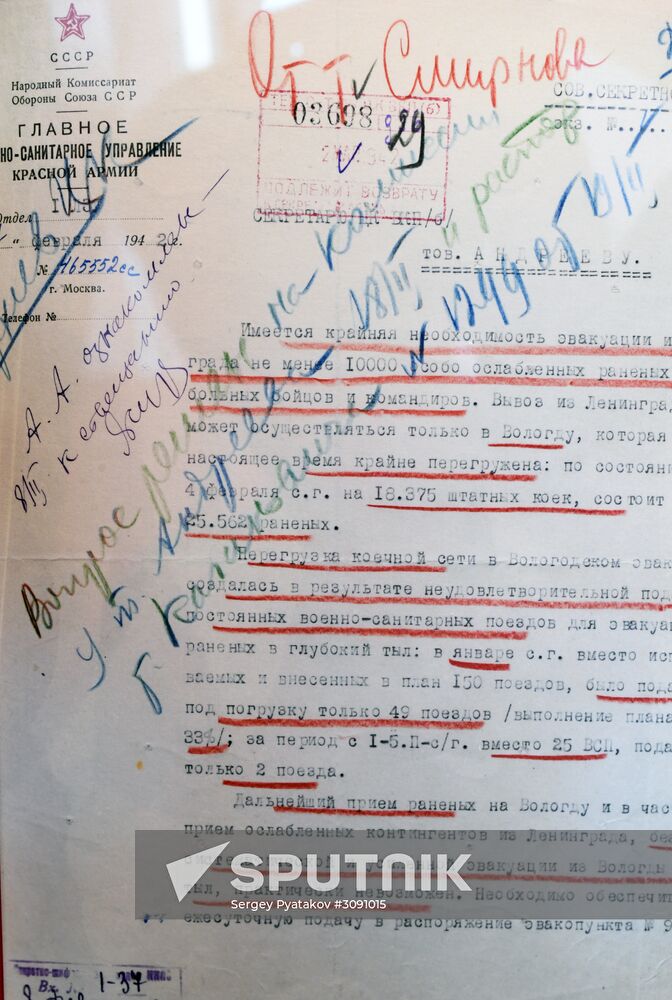 От т. Смирнова
СССР
Народный Комиссариат
Обороны Союза ССР
ГЛАВНОЕ
НО-САНИТАРНОЕ УПРАВЛЕНИЕ
КРАСНОЙ АРМИИ
Отдел
" февраля 1942 г.
№ 465552сс
г. Москва.
Телефон №
СОВ.СЕКРЕТНО
экз. №
03608
29
ПОДЛЕЖИТ ВОЗВРАТУ
СЕКРЕТАРЮ ЦК ВКП/б/
тов. АНДРЕЕВУ.
А. А. ознакомлен
к совещанию
8/II
Вопрос решен на
у т. Андреева 18/II
№ 1299 от 19/II
Имеется крайняя необходимость эвакуации и
града не менее 10000 особо ослабленных раненых
больных бойцов и командиров. Вывоз из Ленингра
может осуществляться только в Вологду, которая
настоящее время крайне перегружена: по состояни
4 февраля с.г. на 18.375 штатных коек, состоит
25.562 раненых.
Перегрузка коечной сети в Вологодском эвак
создалась в результате неудовлетворительной под
постоянных военно-санитарных поездов для эвакуа
раненых в глубокий тыл: в январе с.г. вместо исп
ваемых и внесенных в план 150 поездов, было пода
под погрузку только 49 поездов /выполнение плана
33%/; за период с I-5.П-с/г. вместо 25 ВСП, пода
только 2 поезда.
Дальнейший прием раненых на Вологду и в час
прием ослабленных контингентов из Ленинграда, без
эвакуации из Вологды
тыл, практически невозможен. Необходимо обеспечит
ежесуточную подачу в распоряжение эвакопункта № 9
SPUTNIK
Sergey Pyatakov #3091015
Вх. 1-37